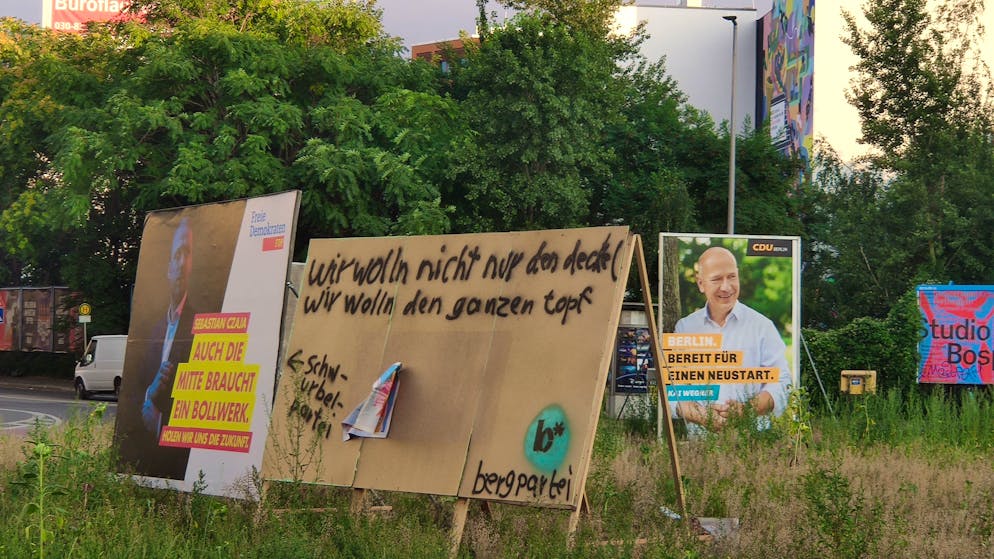 Bürofläc
030-8
Freie
Demokraten
FDP
SEBASTIAN CZAJA
AUCH DIE
MITTE BRAUCHT
EIN BOLLWERK.
HOLEN WIR UNS DIE ZUKUNFT.
wir wolln nicht nur den deckel
wir wolln den ganzen topf
← Schw-
urbel-
partei
b*
bergpartei
CDU BERLIN
BERLIN.
BEREIT FÜR
EINEN NEUSTART.
KAI WEGNER
Studio
Bos